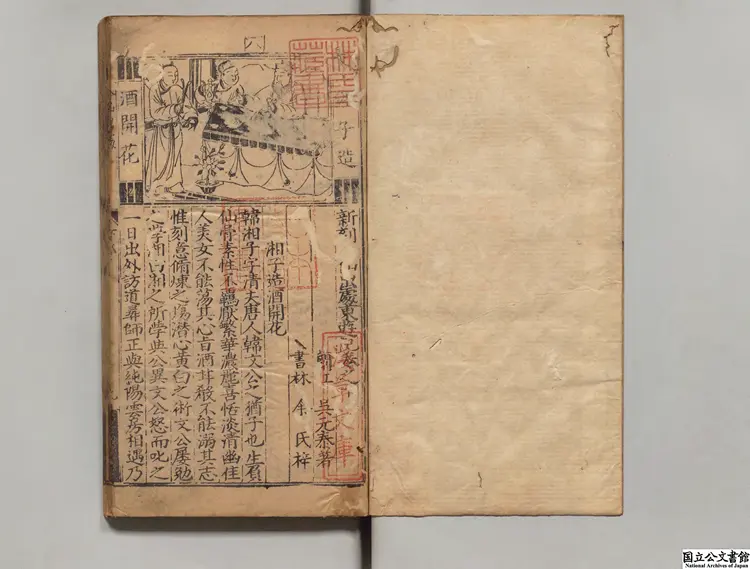 子造
酒開花
林氏藏書
新刻出處東遊記卷之
吳元泰著
書林 余氏梓
淺草文庫
湘子造酒開花
韓湘子字清夫唐人韓文公之猶子也生負
仙骨素性不羈厭繁華濃麗喜恬淡清幽佳
人美女不能蕩其心旨酒甘殽不能溺其志
惟刻意脩煉之塲潛心黃白之術文公屢勉
之學湘曰湘之所學與公異文公怒而叱之
一日出外訪道尋師正與純陽雲房相遇乃
国立公文書館
National Archives of Japan